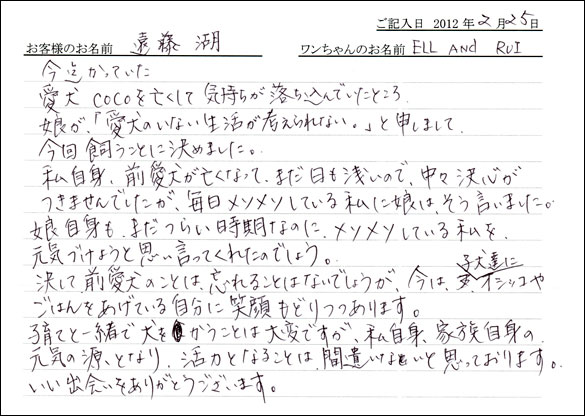 ご記入日 2012年2月25日
お客様のお名前 遠藤 湖 ワンちゃんのお名前 ELL AND RUI
今迄かっていた
愛犬 COCOを亡くして気持ちが落ち込んでいたところ
娘が、「愛犬のいない生活が考えられない。」と申しまして
今回飼うことに決めました。
私自身、前愛犬が亡くなって、まだ日も浅いので、中々決心が
つきませんでしたが、毎日メソメソしている私に娘は、そう言いました。
娘自身も、まだつらい時期なのに、メソメソしている私を、
元気づけようと思い言ってくれたのでしょう。
決して、前愛犬のことは、忘れることはないでしょうが、今は、子犬達にオシッコや
ごはんをあげている自分に笑顔もどりつつあります。
子育てと一緒で犬をかうことは大変ですが、私自身、家族自身の
元気の源、となり、活力となることは、間違いないと思っております。
いい出会いをありがとうございます。